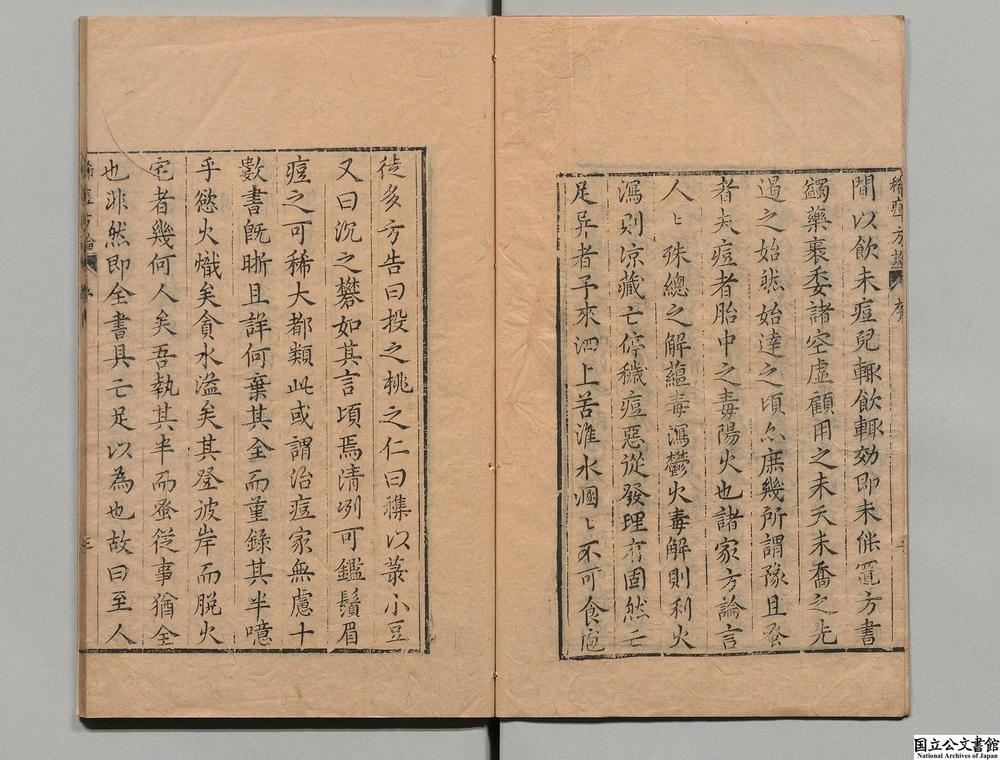 間以飲未痘兒輙飲輙効即未能置方書
蠲藥裹委諸空虛顧用之未夭未喬之先
過之始然始達之頃亦庶幾所謂豫且蚤
者夫痘者胎中之毒陽火也諸家方論言
人〻殊總之解蘊毒瀉鬱火毒解則利火
瀉則凉藏亡停穢痘惡從發理有固然亡
足异者予來泗上苦淮水溷〻不可食庖
徒多方告曰投之桃之仁曰穕以菉小豆
又曰沉之礬如其言頃焉清冽可鑑鬚眉
痘之可稀大都類此或謂治痘家無慮十
數書既晣且詳何棄其全而重錄其半噫
乎慾火熾矣貪水溢矣其登彼岸而脫火
宅者幾何人矣吾執其半而蚤從事猶全
也非然即全書具亡足以為也故曰至人
稀痘方論
序
三
国立公文書館
National Archives of Japan